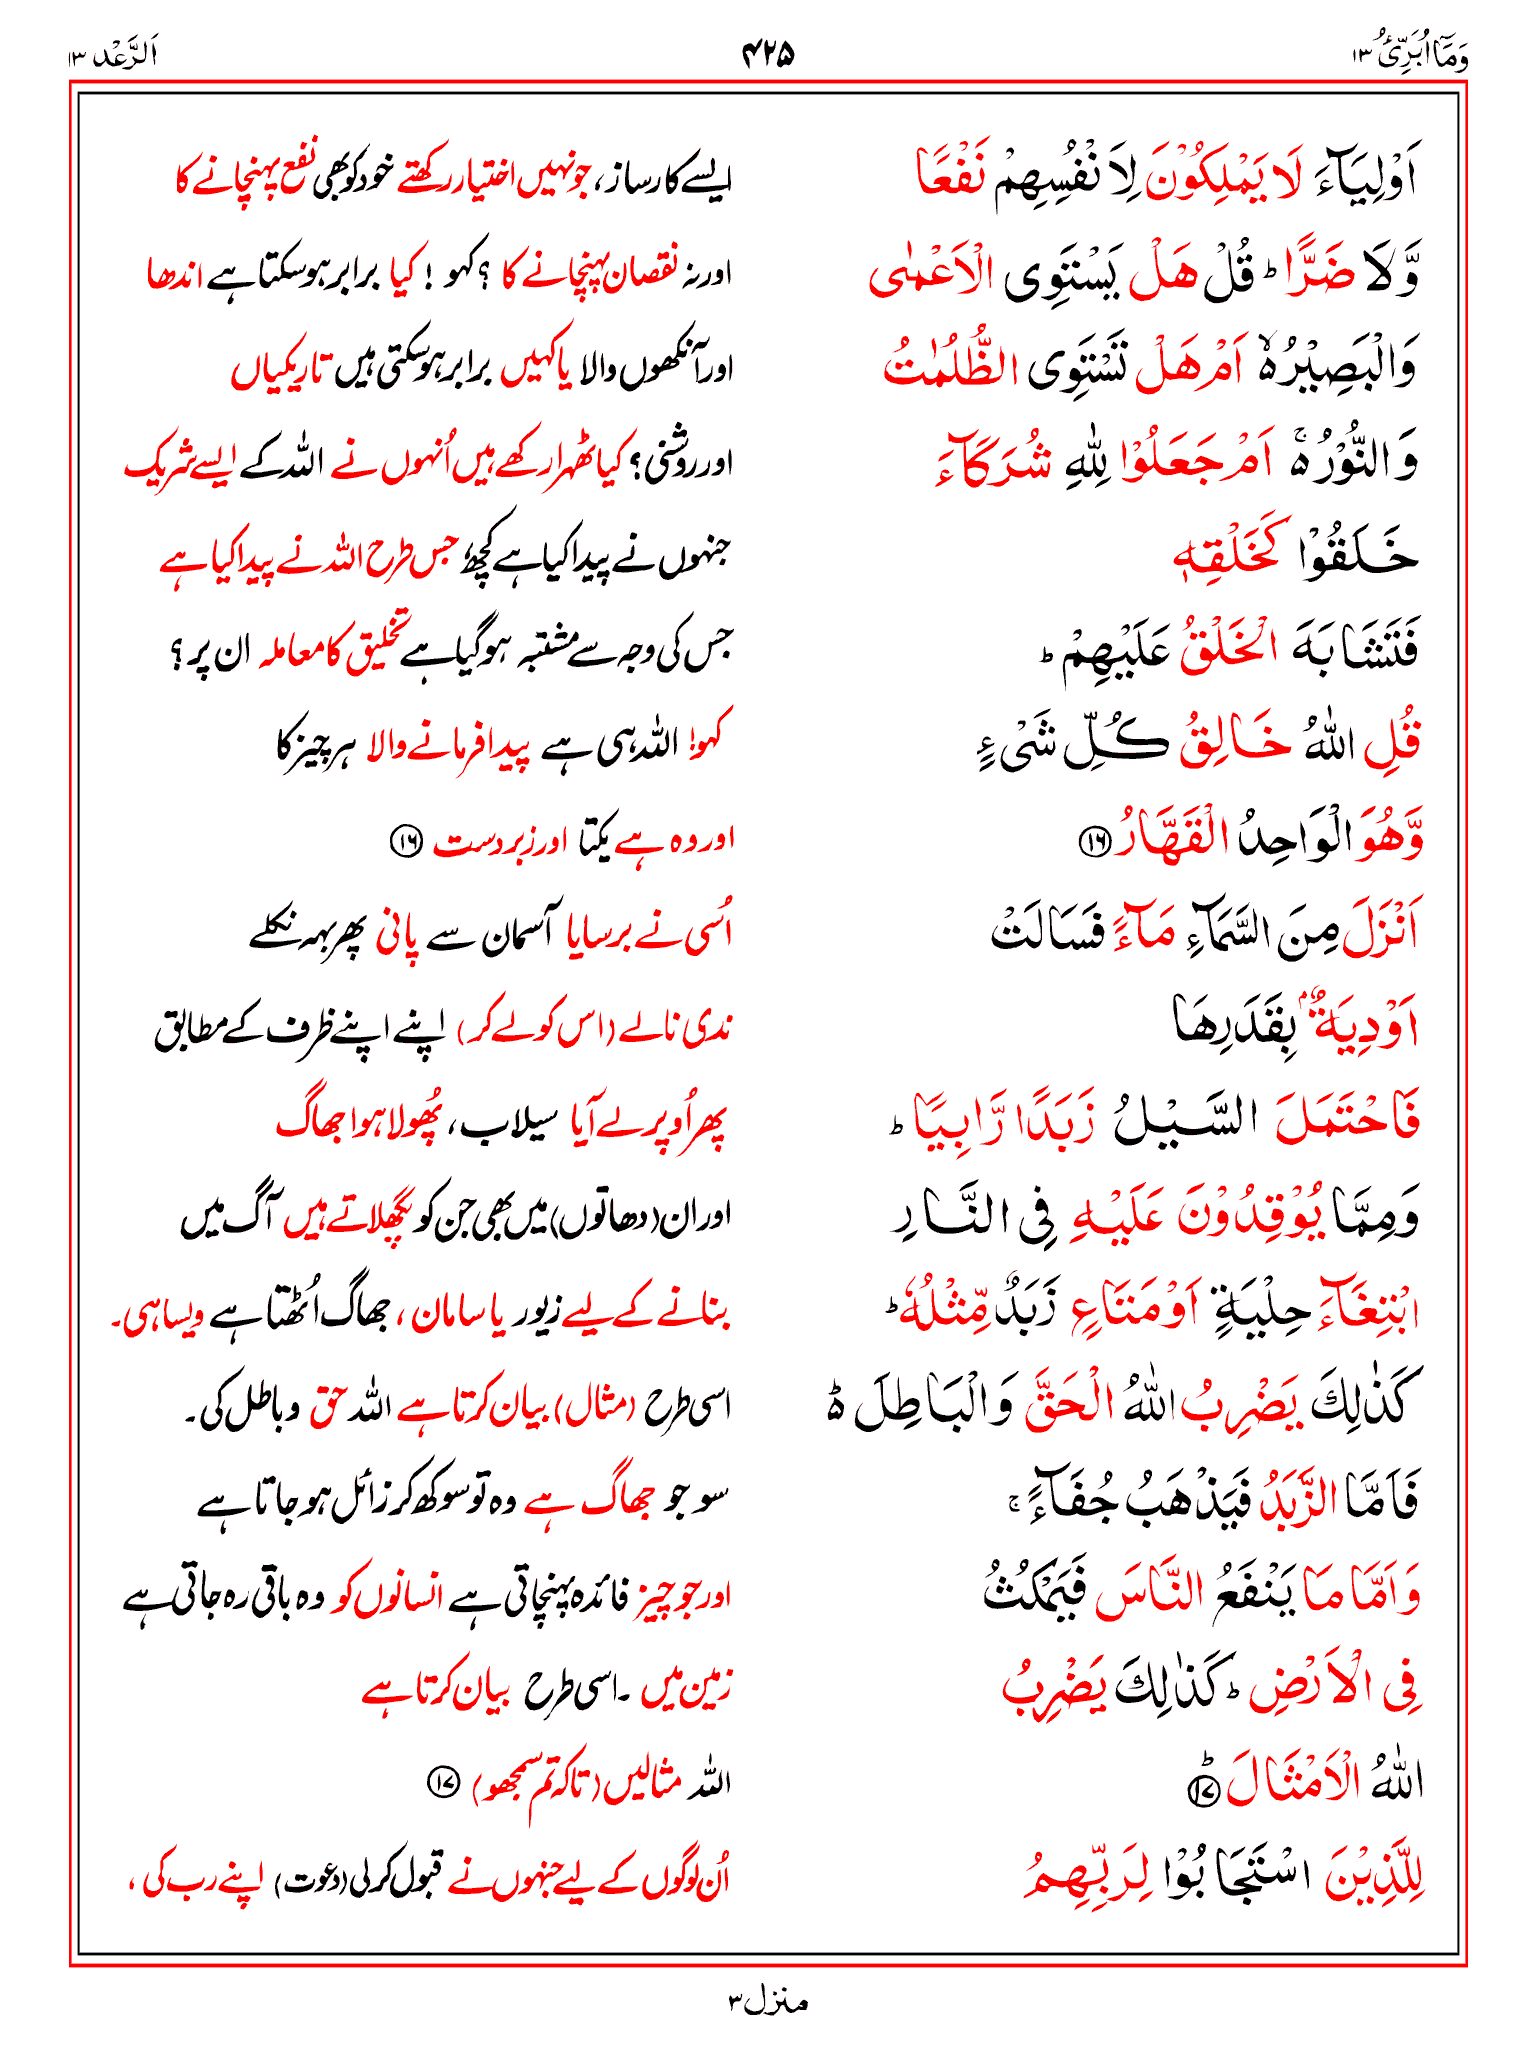 وَمَآ اُبَرِّئُ ۱۳ ۴۲۵ اَلرَّعْد ۱۳
اَوْلِيَآءَ لَا يَمْلِكُوْنَ لِاَنْفُسِهِمْ نَفْعًا ایسے کارساز، جو نہیں اختیار رکھتے خود کو بھی نفع پہنچانے کا
وَّلَا ضَرًّا ؕ قُلْ هَلْ يَسْتَوِى الْاَعْمٰى اور نہ نقصان پہنچانے کا ؟ کہو ! کیا برابر ہو سکتا ہے اندھا
وَالْبَصِيْرُ ۙ۬ اَمْ هَلْ تَسْتَوِى الظُّلُمٰتُ اور آنکھوں والا یا کہیں برابر ہو سکتی ہیں تاریکیاں
وَالنُّوْرُ ۬ۚ اَمْ جَعَلُوْا لِلّٰهِ شُرَكَآءَ اور روشنی؟ کیا ٹھہرا رکھے ہیں اُنہوں نے اللہ کے ایسے شریک
خَلَقُوْا كَخَلْقِهٖ جنہوں نے پیدا کیا ہے کچھ جس طرح اللہ نے پیدا کیا ہے
فَتَشَابَهَ الْخَلْقُ عَلَيْهِمْ ؕ جس کی وجہ سے مشتبہ ہو گیا ہے تخلیق کا معاملہ ان پر ؟
قُلِ اللّٰهُ خَالِقُ كُلِّ شَىْءٍ کہو! اللہ ہی ہے پیدا فرمانے والا ہر چیز کا
وَّهُوَ الْوَاحِدُ الْقَهَّارُ ۱۶ اور وہ ہے یکتا اور زبردست ۱۶
اَنْزَلَ مِنَ السَّمَآءِ مَآءً فَسَالَتْ اُسی نے برسایا آسمان سے پانی پھر بہہ نکلے
اَوْدِيَةٌۢ بِقَدَرِهَا ندی نالے (اس کو لے کر) اپنے اپنے ظرف کے مطابق
فَاحْتَمَلَ السَّيْلُ زَبَدًا رَّابِيًا ؕ پھر اُوپر لے آیا سیلاب، پُھولا ہوا جھاگ
وَمِمَّا يُوْقِدُوْنَ عَلَيْهِ فِى النَّارِ اور ان (دھاتوں) میں بھی جن کو پگھلاتے ہیں آگ میں
ابْتِغَآءَ حِلْيَةٍ اَوْ مَتَاعٍ زَبَدٌ مِّثْلُهٗ ؕ بنانے کے لیے زیور یا سامان ، جھاگ اُٹھتا ہے ویسا ہی۔
كَذٰلِكَ يَضْرِبُ اللّٰهُ الْحَقَّ وَالْبَاطِلَ ۬ؕ اسی طرح (مثال) بیان کرتا ہے اللہ حق و باطل کی۔
فَاَمَّا الزَّبَدُ فَيَذْهَبُ جُفَآءً ۚ سو جو جھاگ ہے وہ تو سوکھ کر زائل ہو جاتا ہے
وَاَمَّا مَا يَنْفَعُ النَّاسَ فَيَمْكُثُ اور جو چیز فائدہ پہنچاتی ہے انسانوں کو وہ باقی رہ جاتی ہے
فِى الْاَرْضِ ؕ كَذٰلِكَ يَضْرِبُ زمین میں ۔اسی طرح بیان کرتا ہے
اللّٰهُ الْاَمْثَالَ ؕ ۱۷ اللہ مثالیں (تاکہ تم سمجھو) ۱۷
لِلَّذِيْنَ اسْتَجَابُوْا لِرَبِّهِمُ اُن لوگوں کے لیے جنہوں نے قبول کر لی (دعوت) اپنے رب کی ،
منزل ۳